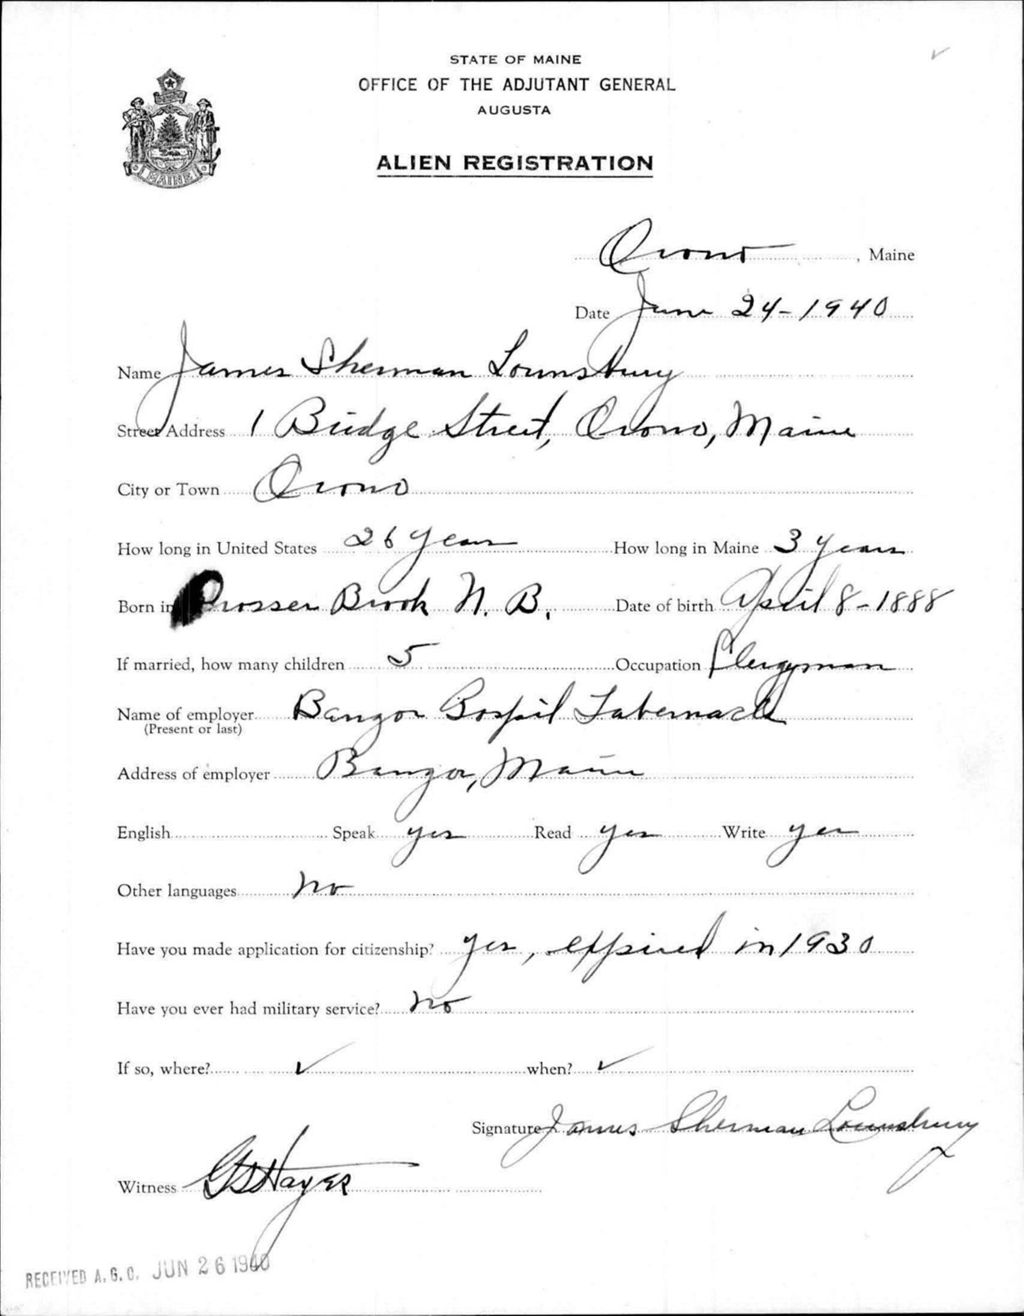 STATE OF MAINE
OFFICE OF THE ADJUTANT GENERAL
AUGUSTA
ALIEN REGISTRATION
MAINE
Orono, Maine
Date June 24-1940
Name James Sherman Lounsbury
Street Address 1 Bridge Street, Orono, Maine
City or Town Orono
How long in United States 26 years How long in Maine 3 years
Born in Prosser Brook N. B. Date of birth April 8-1888
If married, how many children 5 Occupation Clergyman
Name of employer Bangor Gospil Tabernacle
(Present or last)
Address of employer Bangor, Maine
English Speak yes Read yes Write yes
Other languages no
Have you made application for citizenship? yes, expired in 1930
Have you ever had military service? no
If so, where? ✓ when? ✓
Signature James Sherman Lounsbury
Witness Hayes
RECEIVED A.G.O. JUN 26 1940